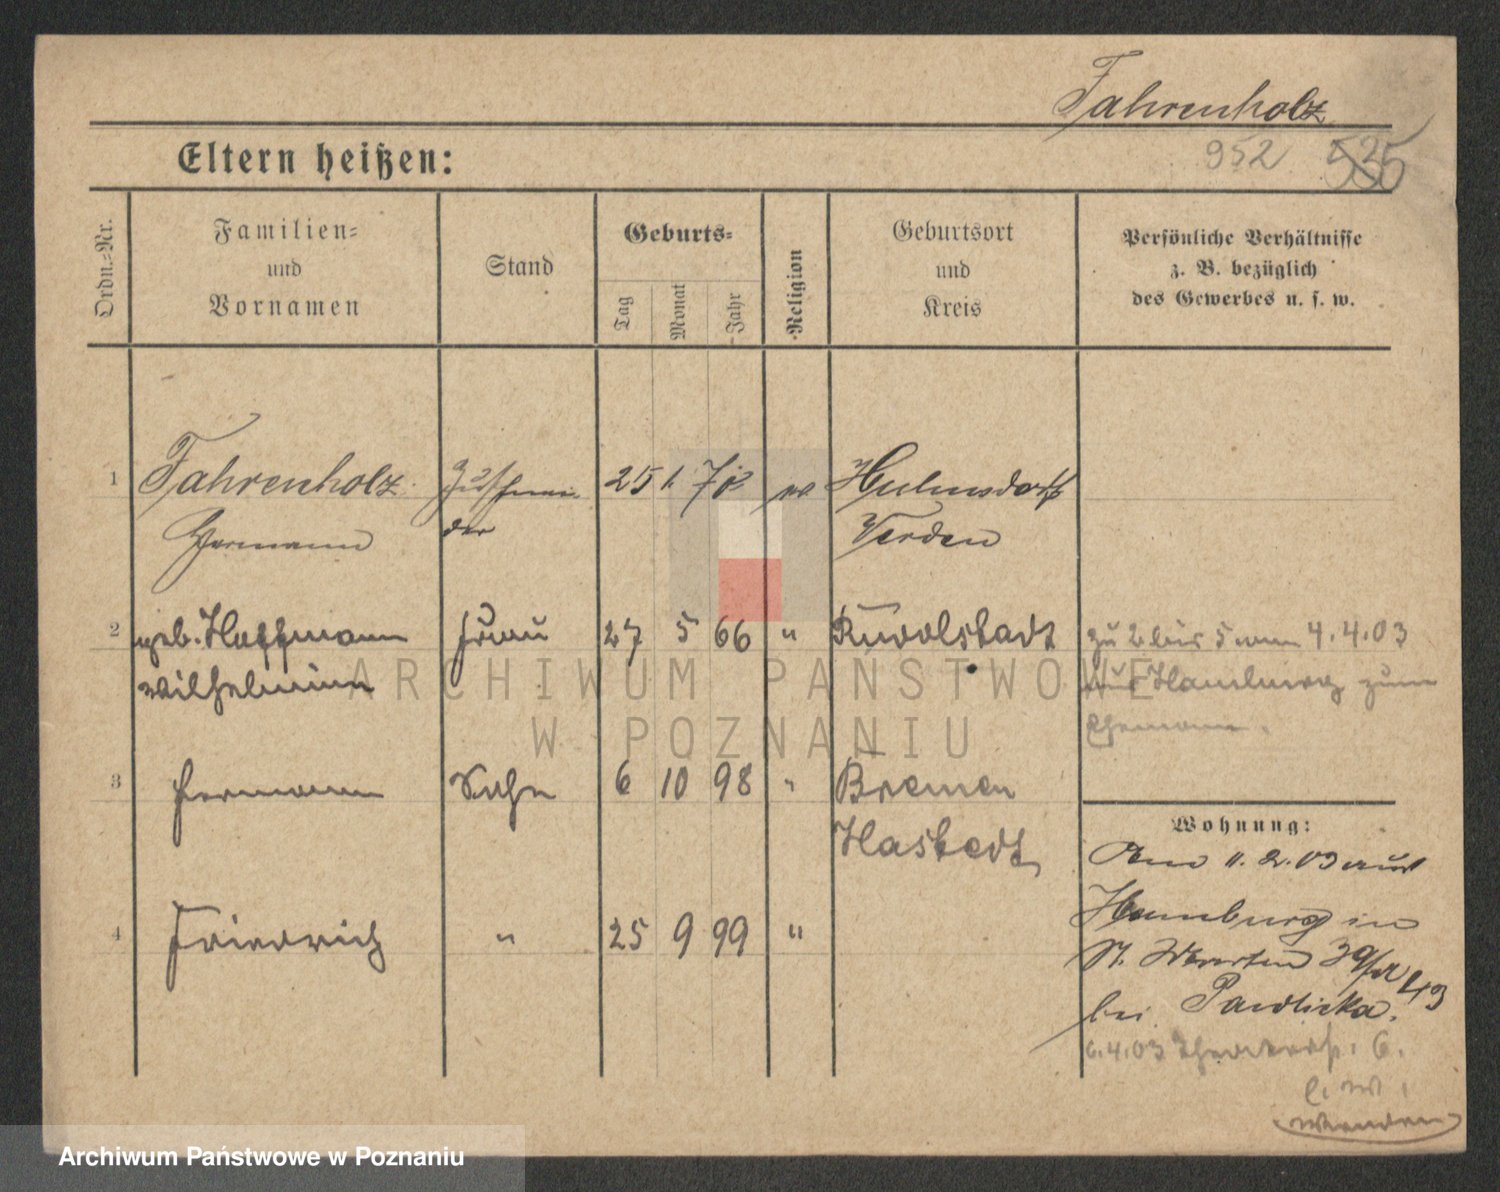 Fahrenholz
Eltern heißen:
952 535
Ordn.=Nr.
Familien=
und
Vornamen
Stand
Geburts=
Tag
Monat
Jahr
Religion
Geburtsort
und
Kreis
Persönliche Verhältnisse
z. B. bezüglich
des Gewerbes u. s. w.
1 Fahrenholz Zuschnei- 25 1. 78
Hermann der Verden
2 geb. Hoffmann Frau 27 5 66 " Rudolstadt zu 2 bis 5 am 4.4.03
Wilhelmine nach Hamburg zum
Ehemann.
3 Hermann Sohn 6 10 98 " Bremen
Hastedt
Wohnung:
Am 11.2.03 aus
4 Friedrich " 25 9 99 "
Hamburg in
St. Martin
bei Pawlicka.
6.4.03
wenden
ARCHIWUM PAŃSTWOWE
W POZNANIU
Archiwum Państwowe w Poznaniu